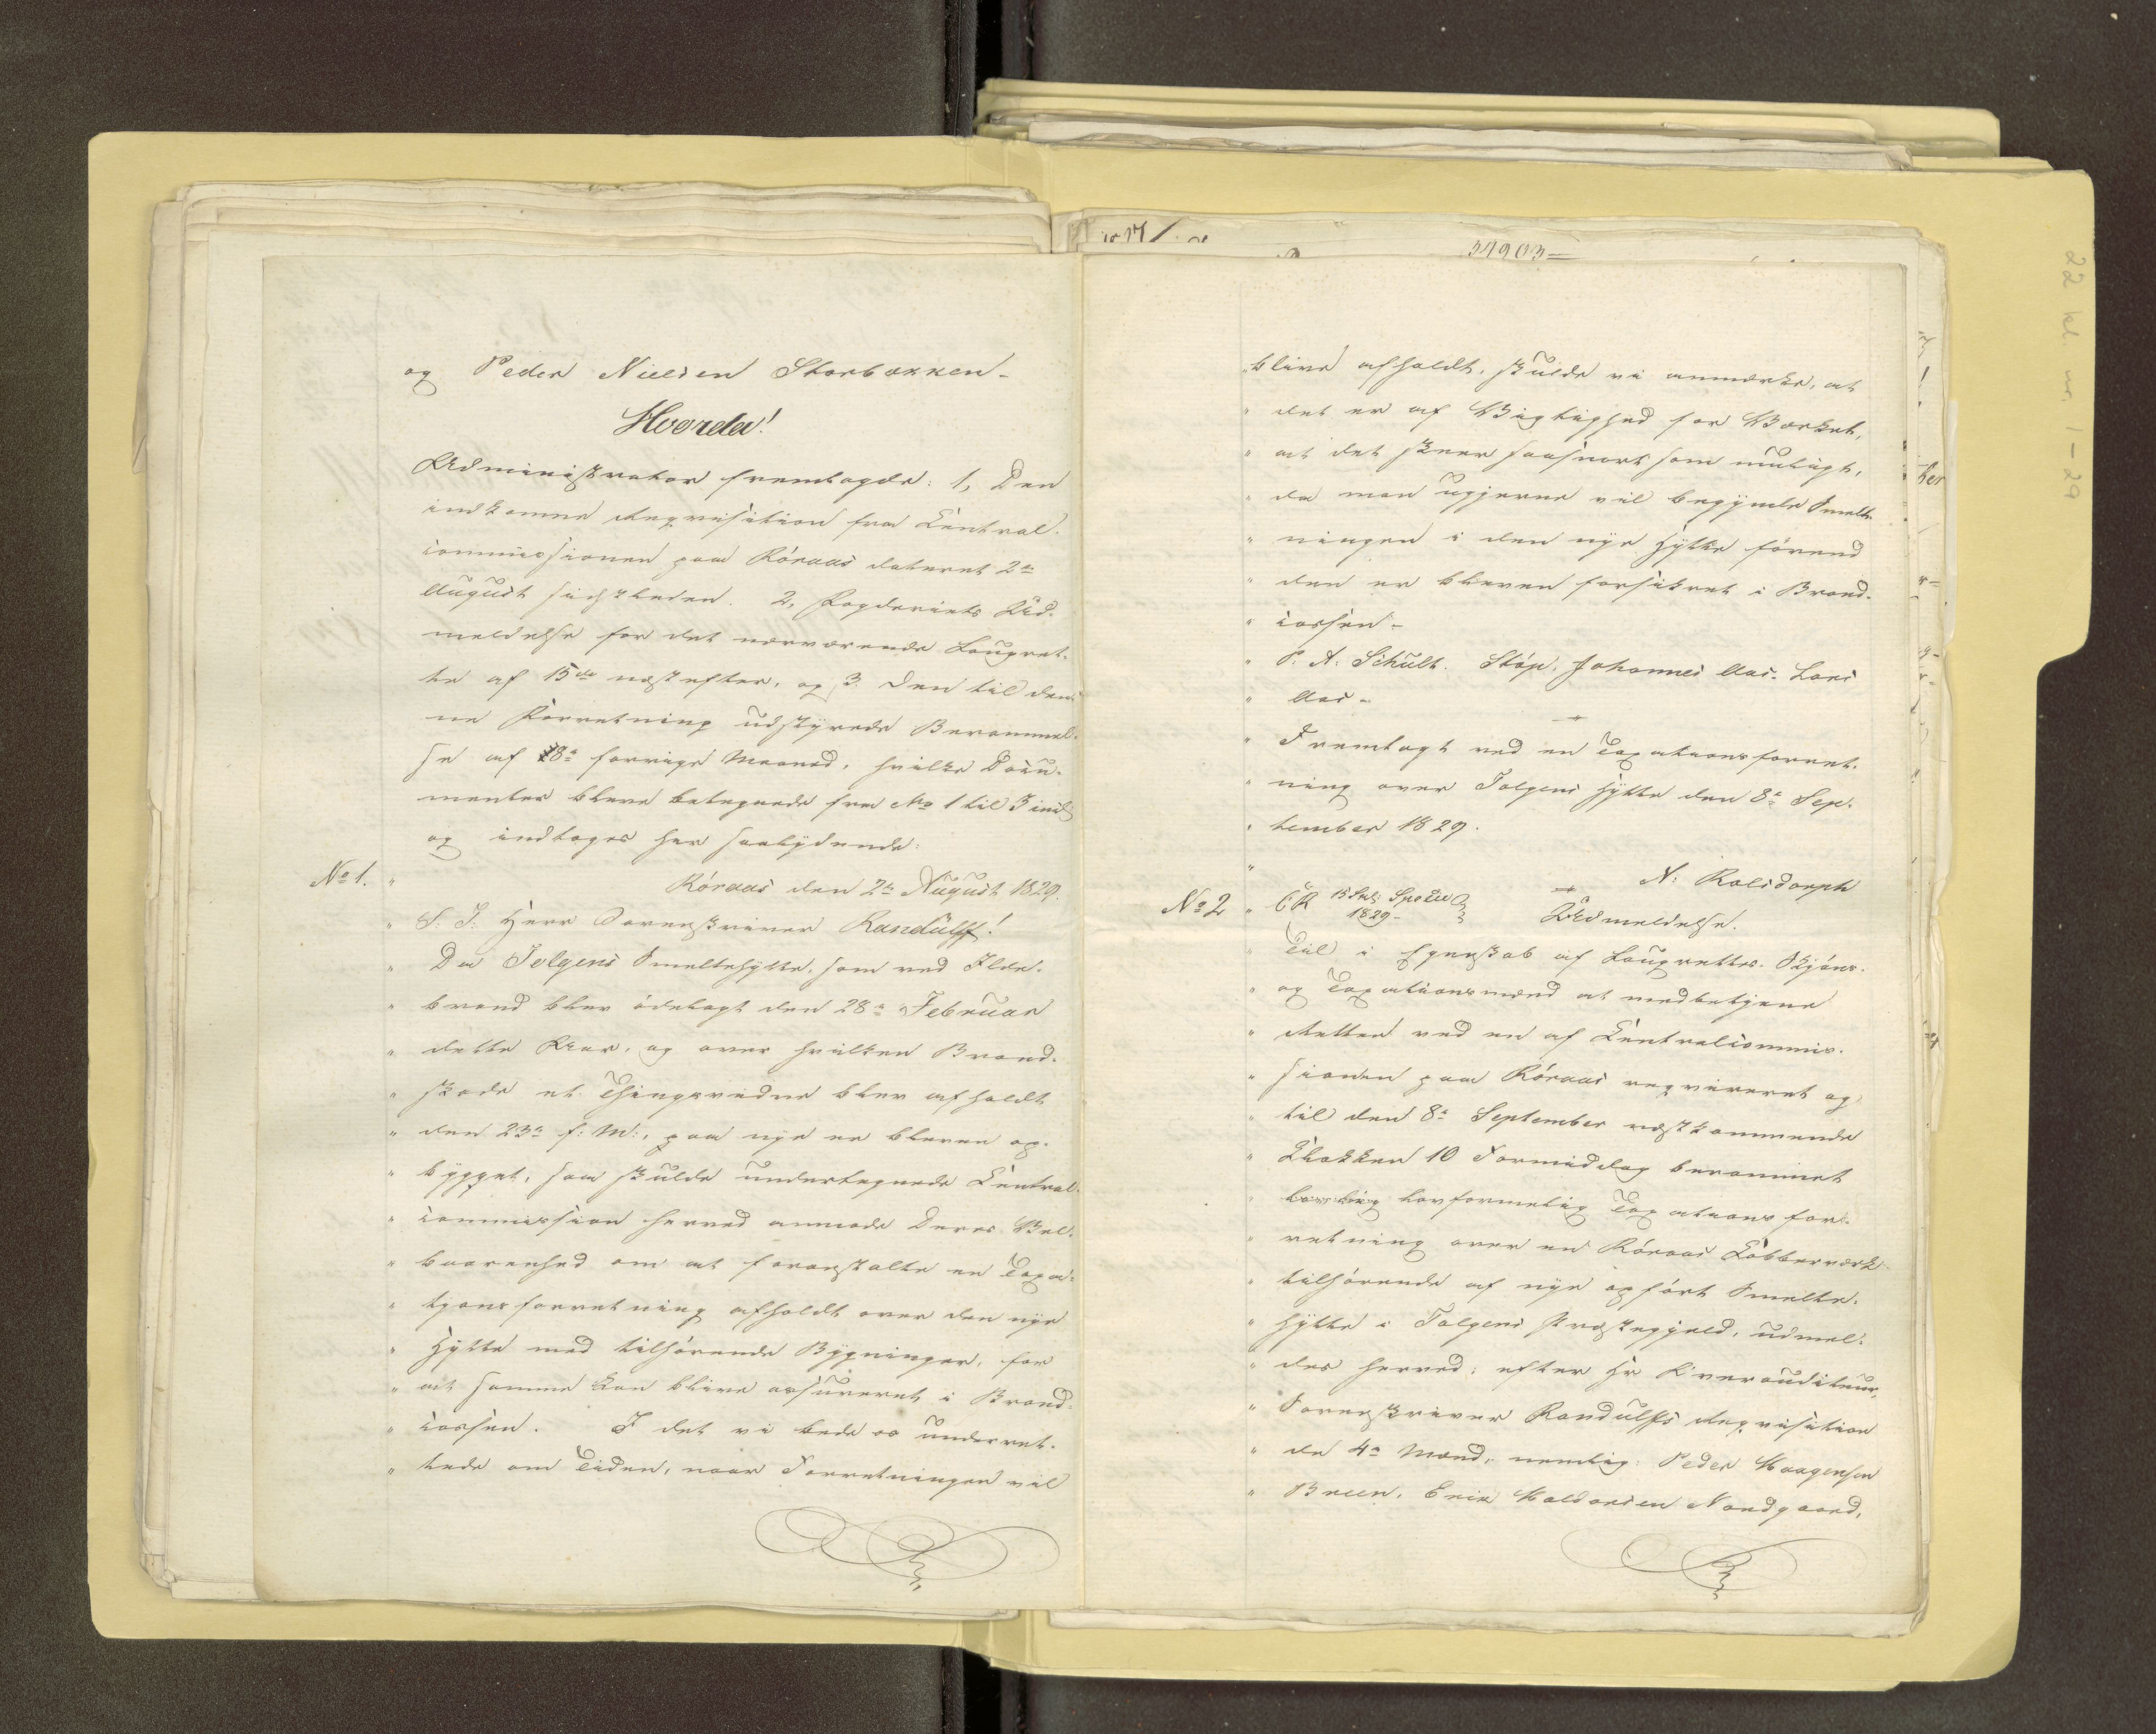 og Peder Nielsen Storbækken-
Hvorda!
Administrator fremlagde: 1, Den
indkomne Reqvisition fra Central-
commissionen paa Röraas dateret 2den
August sidstleden. 2, Fogderiets Ud-
meldelse for det nærværende Laugret-
te af 15de næstefter, og 3. den til den-
ne Forretning udstyrede Berammel-
se af 18de forrige Maaned, hvilke Docu-
menter bleve betegnede fra No 1 til 3 incl
og indtages her saalydende:
No 1. " Röraas den 2den August 1829.
" S. T. Herr Sorenskriver Randulff!
" Da Tolgens Smeltehytte, som ved Ilde-
" brand blev ödelagt den 28de Februar
" dette Aar, og over hvilken Brand-
" skade et Thingsvidne blev afholdt
" den 23de f: M:, paa nye er bleven op-
" bygget, saa skulde undertegnede Central-
" commission herved anmode Deres Vel-
" baarenhed om at foranstalte en Taxa-
" tionsforretning afholdt over den nye
" Hytte med tilhörende Bygninger, for
" at samme kan blive assureret i Brand-
" cassen. I det vi bede os underret-
" tede om Tiden, naar Forretningen vil
" blive afholdt, skulde vi anmærke, at
" det er af Vigtighed for Værket,
" at det skeer saasnart som muligt,
" da man ugjerne vil begynde Smelt-
" ningen i den nye Hytte förend
" den er bleven forsikret i Brand-
" cassen-
" P. A. Schult. Stöp. Johannes Aas. Lars
" Aas-
" Fremlagt ved en Taxationsforret-
" ning over Tolgens Hytte den 8de Sep-
" tember 1829.
" N: Rolsdorph
No 2 " CR 15 Sk: Species 1829- Udmeldelse.
" Til i Egenskab af Laugrettes- Skjöns-
" og Taxationsmænd at medbetjene
" Retten ved en af Centralcommis-
" sionen paa Röraas reqvireret og
" til den 8de September næstkommende
" Klokken 10 Formiddag berammet
" lovformelig Taxations for-
" retning over en Röraas Kobberværk
" tilhörende af nye opfört Smelte-
" hytte i Tolgens Præstegjeld, udmel-
" des herved, efter Hr Overauditeur,
" Sorenskriver Randulffs Reqvisition
" de 4re Mænd, nemlig: Peder Haagensen
" Breen, Erik Haldorsen Nordgaard,
34903=
22 kl nr 1-29